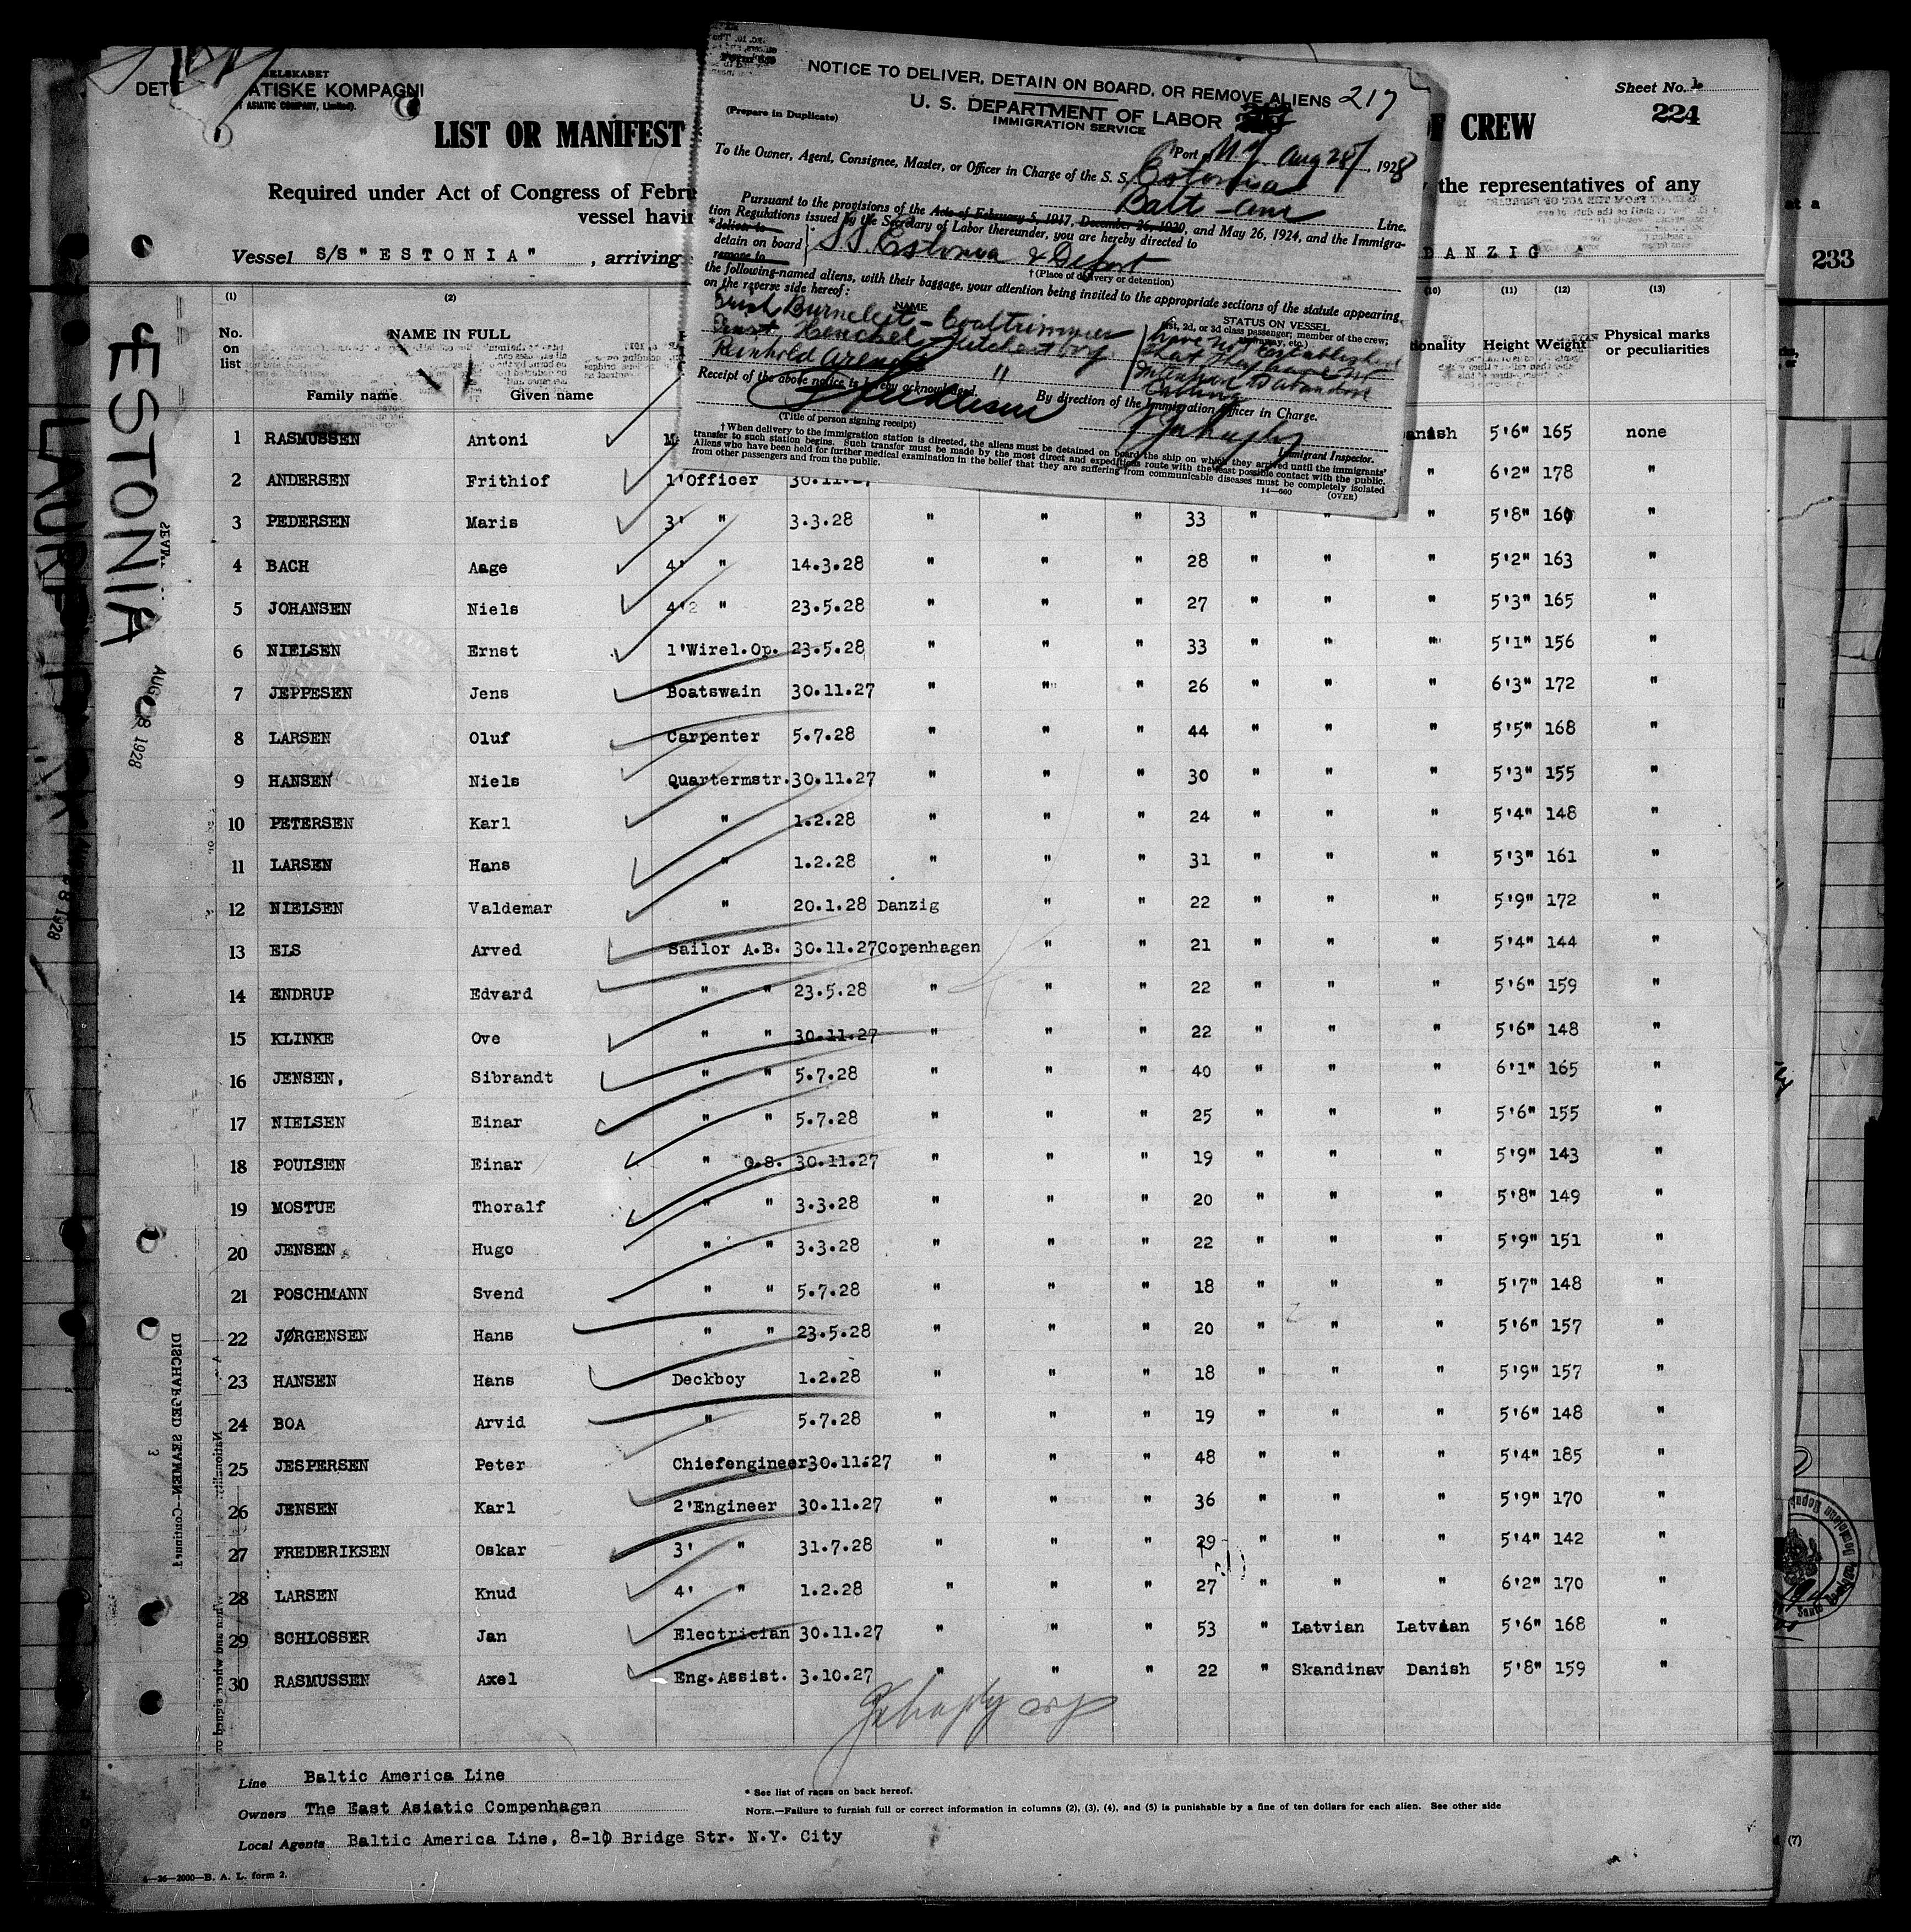 DET
SELSKABET
ATISKE KOMPAGNI
ASIATIC COMPANY, Limited).
Sheet No. 1
224
LIST OR MANIFEST
OF CREW
Required under Act of Congress of
the representatives of any
vessel
Vessel S/S "ESTONIA", arriving
DANZIG
233
NOTICE TO DELIVER, DETAIN ON BOARD, OR REMOVE ALIENS 217
U. S. DEPARTMENT OF LABOR
(Prepare in Duplicate)
IMMIGRATION SERVICE
Port NY Aug 28, 1928
To the Owner, Agent, Consignee, Master, or Officer in Charge of the S. S. Estonia
Balt-Am Line.
Pursuant to the provisions of the Acts of February 5, 1917, December 26, 1920, and May 26, 1924, and the Immigra-
tion Regulations issued by the Secretary of Labor thereunder, you are hereby directed to
* deliver to
detain on board
remove to
SS Estonia & Deport
† (Place of delivery or detention)
the following-named aliens, with their baggage, your attention being invited to the appropriate sections of the statute appearing
on the reverse side hereof:
NAME
STATUS ON VESSEL
Burneleit - Coaltrimmer
Ernst Henchel Kitchenboy
Reinhold Arendt "
have not established
that they have no
intention to abandon
calling
Receipt of the above notice is hereby acknowledged.
By direction of the Immigration Officer in Charge.
(Title of person signing receipt)
Immigrant Inspector.
† When delivery to the immigration station is directed, the aliens must be detained on board the ship on which they arrived until the immigrants'
transfer to such station begins. Such transfer must be made by the most direct and expeditious route with the least possible contact with the public.
Aliens who have been held for further medical examination in the belief that they are suffering from communicable diseases must be completely isolated
from other passengers and from the public.
14—660 (OVER)
(1) (2) (10) (11) (12) (13)
No. on list NAME IN FULL Height Weight Physical marks or peculiarities
Family name Given name
1 RASMUSSEN Antoni 5'6" 165 none
2 ANDERSEN Frithiof 1'Officer " 6'2" 178 "
3 PEDERSEN Maris 3' " 3.3.28 " " " 33 " " " 5'8" 160 "
4 BACH Aage 4' " 14.3.28 " " " 28 " " " 5'2" 163 "
5 JOHANSEN Niels 4'2 " 23.5.28 " " " 27 " " " 5'3" 165 "
6 NIELSEN Ernst 1'Wirel.Op. 23.5.28 " " " 33 " " " 5'1" 156 "
7 JEPPESEN Jens Boatswain 30.11.27 " " " 26 " " " 6'3" 172 "
8 LARSEN Oluf Carpenter 5.7.28 " " " 44 " " " 5'5" 168 "
9 HANSEN Niels Quartermstr. 30.11.27 " " " 30 " " " 5'3" 155 "
10 PETERSEN Karl " 1.2.28 " " " 24 " " " 5'4" 148 "
11 LARSEN Hans " 1.2.28 " " " 31 " " " 5'3" 161 "
12 NIELSEN Valdemar " 20.1.28 Danzig " " 22 " " " 5'9" 172 "
13 ELS Arved Sailor A.B. 30.11.27 Copenhagen " " 21 " " " 5'4" 144 "
14 ENDRUP Edvard " " 23.5.28 " " " 22 " " " 5'6" 159 "
15 KLINKE Ove " " 30.11.27 " " " 22 " " " 5'6" 148 "
16 JENSEN, Sibrandt " " 5.7.28 " " " 40 " " " 6'1" 165 "
17 NIELSEN Einar " " 5.7.28 " " " 25 " " " 5'6" 155 "
18 POULSEN Einar " O.S. 30.11.27 " " " 19 " " " 5'9" 143 "
19 MOSTUE Thoralf " " 3.3.28 " " " 20 " " " 5'8" 149 "
20 JENSEN Hugo " " 3.3.28 " " " 22 " " " 5'9" 151 "
21 POSCHMANN Svend " " 5.7.28 " " " 18 " " " 5'7" 148 "
22 JØRGENSEN Hans " " 23.5.28 " " " 20 " " " 5'6" 157 "
23 HANSEN Hans Deckboy 1.2.28 " " " 18 " " " 5'9" 157 "
24 BOA Arvid " 5.7.28 " " " 19 " " " 5'6" 148 "
25 JESPERSEN Peter Chiefengineer 30.11.27 " " " 48 " " " 5'4" 185 "
26 JENSEN Karl 2'Engineer 30.11.27 " " " 36 " " " 5'9" 170 "
27 FREDERIKSEN Oskar 3' " 31.7.28 " " " 29 " " " 5'4" 142 "
28 LARSEN Knud 4' " 1.2.28 " " " 27 " " " 6'2" 170 "
29 SCHLOSSER Jan Electrician 30.11.27 " " " 53 " Latvian Latvian 5'6" 168 "
30 RASMUSSEN Axel Eng.Assist. 3.10.27 " " " 22 " Skandinav Danish 5'8" 159 "
Line Baltic America Line
* See list of races on back hereof.
Owners The East Asiatic Compenhagen
NOTE.—Failure to furnish full or correct information in columns (2), (3), (4), and (5) is punishable by a fine of ten dollars for each alien. See other side
Local Agents Baltic America Line, 8-10 Bridge Str. N.Y. City
4—26—2000—B. A. L. form 2.
ESTONIA
DISCHARGED SEAMEN—Continued
3
(7)